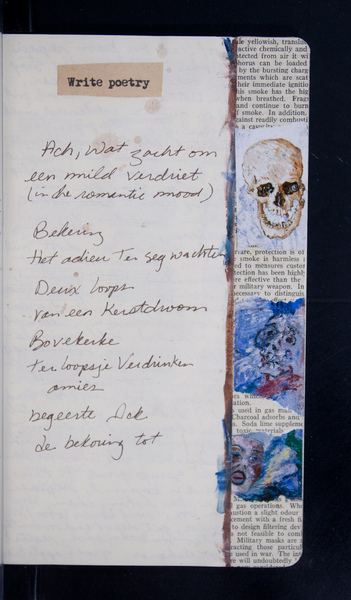 Write poetry
Ach, wat zacht om
een mild verdriet
(in the romantic mood)
Bekering
Het adieu Ten seg wachten
Deux loops
van een Kerstdroom
Bovekerke
ter loopsje Verdrinken
amies
begeerte
de bekoring tot
yellowish,
active chemically and
tected from air it wi
horus can be loaded
by the bursting charg
ments which are scat
heir immediate ignitio
is smoke has the hig
when breathed. Frag
and continue to burn
f smoke. In addition,
against readily combusti
protection is of
smoke is harmless
ed to measures custom
tection has been highly
re effective than the
military weapon. In
ecessary to distinguis
ation.
used in gas
Charcoal adsorbs and
s. Soda lime suppleme
toxic materials
gas operations.
ustion a slight odour
cement with a fresh
to design filtering dev
not feasible to com
Military masks are
racting those particul
used in war. The
re will undoubtedly